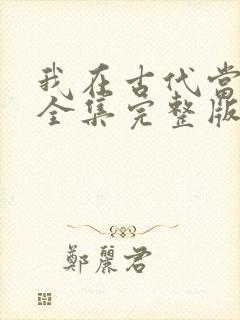 我在古代當
全集完整版
鄭麗君